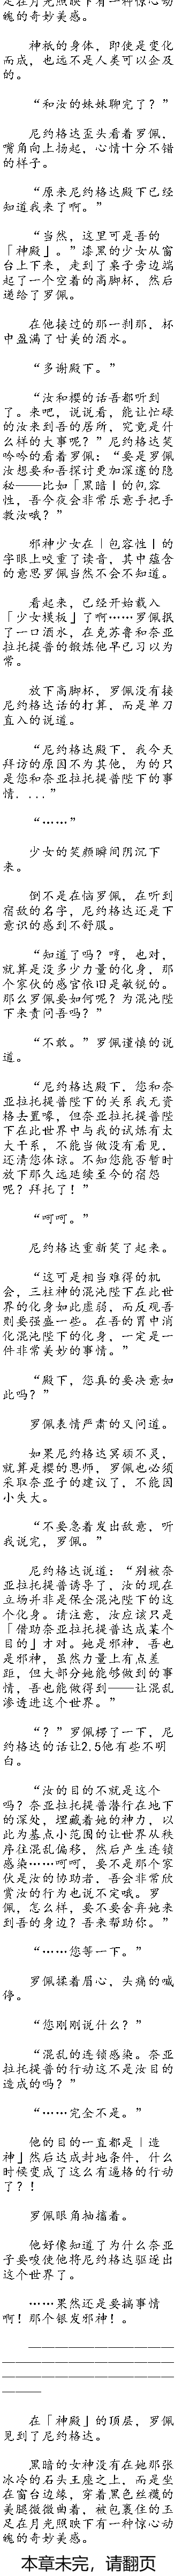 足在月光照映下有一种惊心动
魄的奇妙美感。
神祇的身体，即使是变化
而成，也远不是人类可以企及
的。
“和汝的妹妹聊完了？”
尼约格达歪头看着罗佩，
嘴角向上扬起，心情十分不错
的样子。
“原来尼约格达殿下已经
知道我来了啊。”
“当然，这里可是吾的
「神殿」。”漆黑的少女从窗
台上下来，走到了桌子旁边端
起了一个空着的高脚杯，然后
递给了罗佩。
在他接过的那一刹那，杯
中盈满了甘美的酒水。
“多谢殿下。”
“汝和樱的话吾都听到
了。来吧，说说看，能让忙碌
的汝来到吾的居所，究竟是什
么样的大事呢？”尼约格达笑
吟吟的看着罗佩：“要是罗佩
汝想要和吾探讨更加深邃的隐
秘——比如「黑暗」的包容
性，吾今夜会非常乐意手把手
教汝哦？”
邪神少女在「包容性」的
字眼上咬重了读音，其中蕴含
的意思罗佩当然不会不知道。
看起来，已经开始载入
「少女模板」了啊……罗佩抿
了一口酒水，在克苏鲁和奈亚
拉托提普的锻炼他早已习以为
常。
放下高脚杯，罗佩没有接
尼约格达话的打算，而是单刀
直入的说道。
“尼约格达殿下，我今天
拜访的原因不为其他，为的只
是您和奈亚拉托提普陛下的事
情．．．”
“……”
少女的笑颜瞬间阴沉下
来。
倒不是在恼罗佩，在听到
宿敌的名字，尼约格达还是下
意识的感到不舒服。
“知道了吗？哼，也对，
就算是没多少力量的化身，那
个家伙的感官依旧是敏锐的。
那么罗佩要如何呢？为混沌陛
下来责问吾吗？”
“不敢。”罗佩谨慎的说
道。
“尼约格达殿下，您和奈
亚拉托提普陛下的关系我无资
格去置喙，但奈亚拉托提普陛
下在此世界中与我的试炼有太
大干系，不能当做没有看见，
还清您体谅。不知您能否暂时
放下那久远延续至今的宿怨
呢？拜托了！”
“呵呵。”
尼约格达重新笑了起来。
“这可是相当难得的机
会，三柱神的混沌陛下在此世
界的化身如此虚弱，而反观吾
则要强盛一些。在吾的胃中消
化混沌陛下的化身，一定是一
件非常美妙的事情。”
“殿下，您真的要决意如
此吗？”
罗佩表情严肃的又问道。
如果尼约格达冥顽不灵，
就算是樱的恩师，罗佩也必须
采取奈亚子的建议了，不能因
小失大。
“不要急着发出敌意，听
我说完，罗佩。”
尼约格达说道：“别被奈
亚拉托提普诱导了，汝的现在
立场并非是保全混沌陛下的这
个化身。请注意，汝应该只是
「借助奈亚拉托提普达成某个
目的」才对。她是邪神，吾也
是邪神，虽然力量上有点差
距，但大部分她能够做到的事
情，吾也能做得到——让混乱
渗透进这个世界。”
“？”罗佩楞了一下，尼
约格达的话让2.5他有些不明
白。
“汝的目的不就是这个
吗？奈亚拉托提普潜行在地下
的深处，埋藏着她的神力，以
此为基点小范围的让世界从秩
序往混乱偏移，然后产生连锁
感染……呵呵，要不是那个家
伙是汝的协助者，吾会非常欣
赏汝的行为也说不定哦。罗
佩，怎么样，要不要舍弃她来
到吾的身边？吾来帮助你。”
“……您等一下。”
罗佩揉着眉心，头痛的喊
停。
“您刚刚说什么？”
“混乱的连锁感染。奈亚
拉托提普的行动这不是汝目的
造成的吗？”
“……完全不是。”
他的目的一直都是「造
神」然后达成封地条件，什么
时候变成了这么有逼格的行动
了？！
罗佩眼角抽搐着。
他好像知道了为什么奈亚
子要唆使他将尼约格达驱逐出
这个世界了。
……果然还是要搞事情
啊！那个银发邪神！。
———————————
—————————————
—————————————
———
在「神殿」的顶层，罗佩
见到了尼约格达。
黑暗的女神没有在她那张
冰冷的石头王座之上，而是坐
在窗台边缘，穿着黑色丝袜的
美腿微微曲着，被包裹住的玉
足在月光照映下有一种惊心动
魄的奇妙美感。
本章未完，请翻页